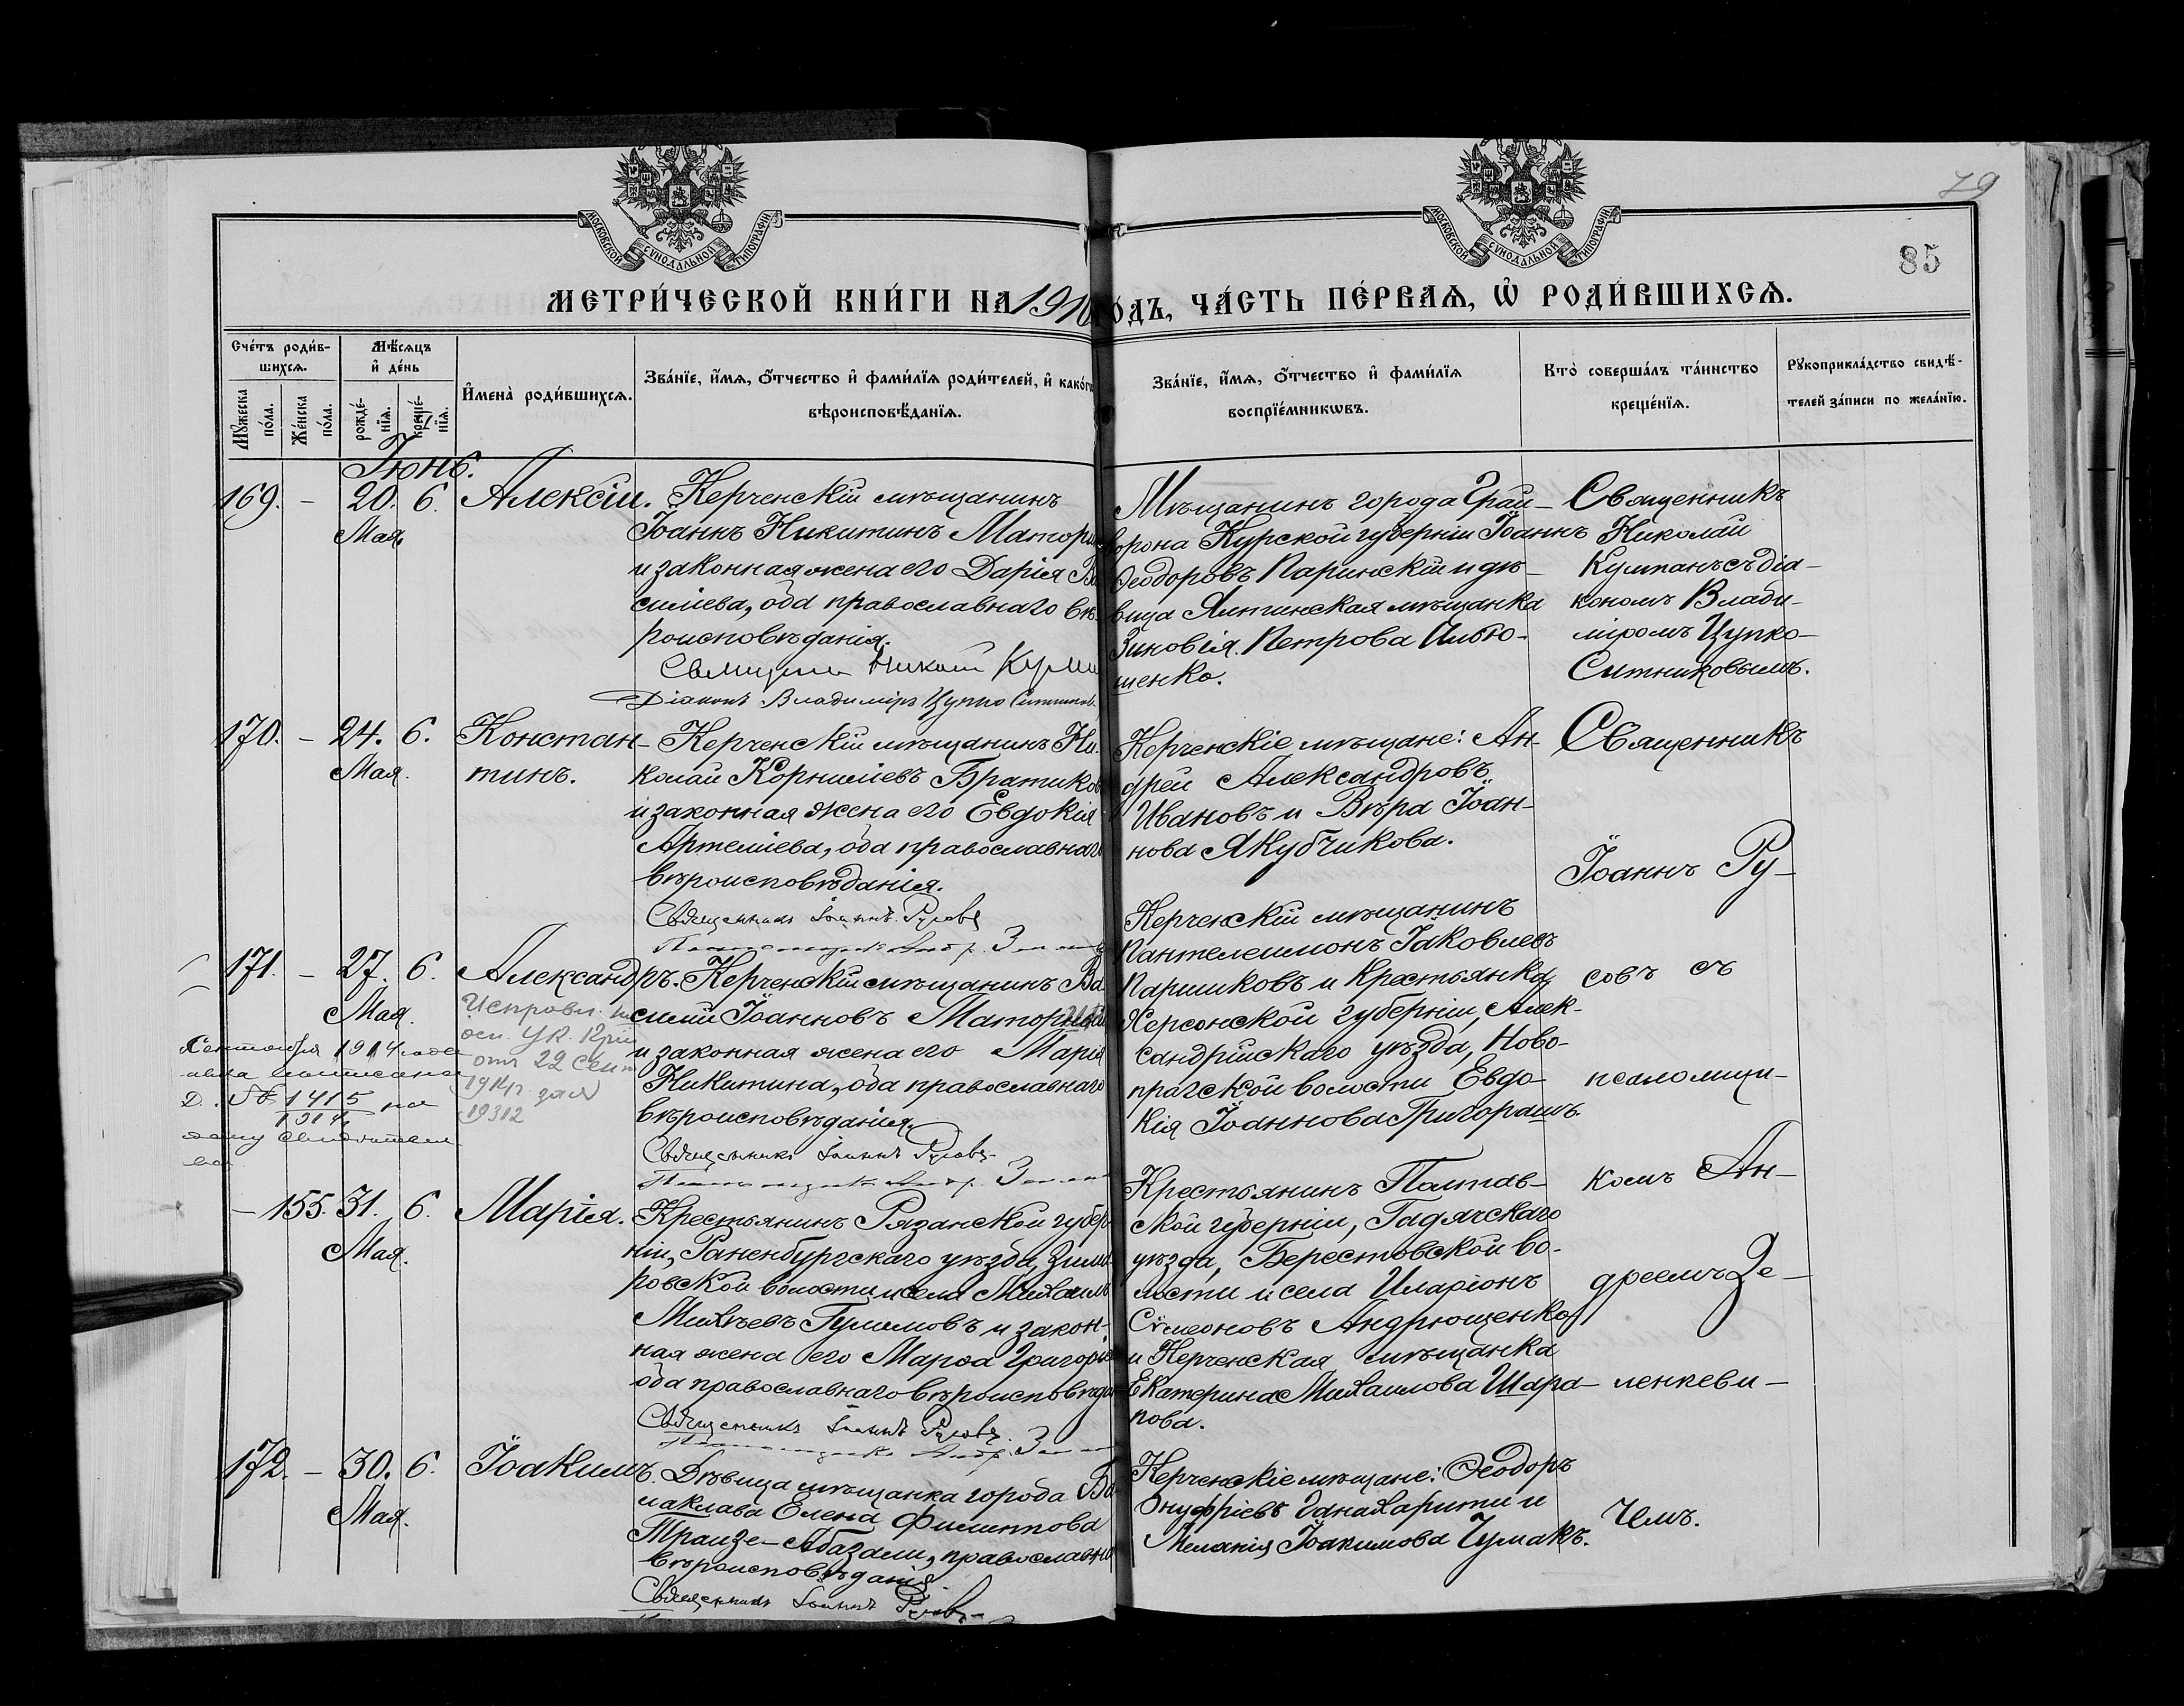 79
85
МОСКОВСКОЙ СѴНОДАЛЬНОЙ ТИПОГРАФІИ
МОСКОВСКОЙ СѴНОДАЛЬНОЙ ТИПОГРАФІИ
МЕТРИ́ЧЕСКОЙ КНИ́ГИ НА 1910 ГОДЪ, ЧА́СТЬ ПЕ́РВАЯ, Ѡ РОДИ́ВШИХСЯ.
Счетъ родив-
шихся.
Мѣсяцъ
и день
Мужеска
пола.
Женска
пола.
рожде-
нія.
креще-
нія.
Имена родившихся.
Званіе, имя, отчество и фамилія родителей, и какого
вѣроисповѣданія.
Званіе, имя, отчество и фамилія
воспріемниковъ.
Кто совершалъ таинство
крещенія.
Рукоприкладство свидѣ-
телей записи по желанію.
Іюнь.
169. – 20. 6. Алексій.
Мая
Керченскій мѣщанинъ
Іоаннъ Никитинъ
и законная жена его Дарія Ва
силіева, оба православнаго вѣ-
роисповѣданія.
Священникъ Николай
Діаконъ Владиміръ Цупко Ситников
Мѣщанинъ города Грай-
ворона Курской губерніи Іоаннъ
Ѳеодоровъ Паринскій и дѣ-
вица Ялтинская мѣщанка
Зиновія Петрова
шенко.
Священникъ
Николай
Кумпанъ съ діа-
кономъ Влади-
міромъ Цупко-
Ситниковымъ.
170. – 24. 6. Констан-
Мая. тинъ.
Керченскій мѣщанинъ Ни-
колай Корниліевъ Братиков
и законная жена его Евдокія
Артеміева, оба православнаго
вѣроисповѣданія.
Священникъ Іоаннъ Русовъ
Керченскіе мѣщане: Ан-
дрей Александровъ
Ивановъ и Вѣра Іоан-
нова Якубчикова.
Священникъ
Іоаннъ Ру-
171. – 27. 6. Александръ.
Мая.
Исправл.
от 22 Сент
1914 г. за №
19312
Сентября 1914 года
Д. № 1415
1914
Керченскій мѣщанинъ Ва
силій Іоанновъ
и законная жена его Марія
Никитина, оба православнаго
вѣроисповѣданія.
Священникъ Іоаннъ Русовъ
Керченскій мѣщанинъ
Пантелеимонъ Іаковлевъ
Паршиковъ и крестьянка
Херсонской губерніи, Алек-
сандрійскаго уѣзда, Ново-
прагской волости Евдо-
кія Іоаннова Григорашъ.
совъ съ
псаломщи-
– 155. 31. 6. Марія.
Мая.
Крестьянинъ Рязанской губер
ніи, Раненбургскаго уѣзда, Зими
ровской волости и села Михаилъ
Михѣевъ и закон-
ная жена его Марѳа Григорьева
оба православнаго вѣроисповѣдан
Священникъ Іоаннъ Русовъ
Крестьянинъ Полтав-
ской губерніи, Гадячскаго
уѣзда, Берестовской во-
лости и села Иларіонъ
Сѵмеоновъ Андрющенко
и Керченская мѣщанка
Екатерина Михаилова Шара-
пова.
комъ Ан-
дреемъ Зе-
ленкеви-
172. – 30. 6. Іоакимъ.
Мая.
Дѣвица мѣщанка города Ба
лаклава Елена Филиппова
Траизе-Абазали, православна
вѣроисповѣданія.
Священникъ Іоаннъ Русовъ
Керченскіе мѣщане: Ѳеодоръ
Онуфріевъ и
Меланія Іоакимова Чумакъ.
чемъ.